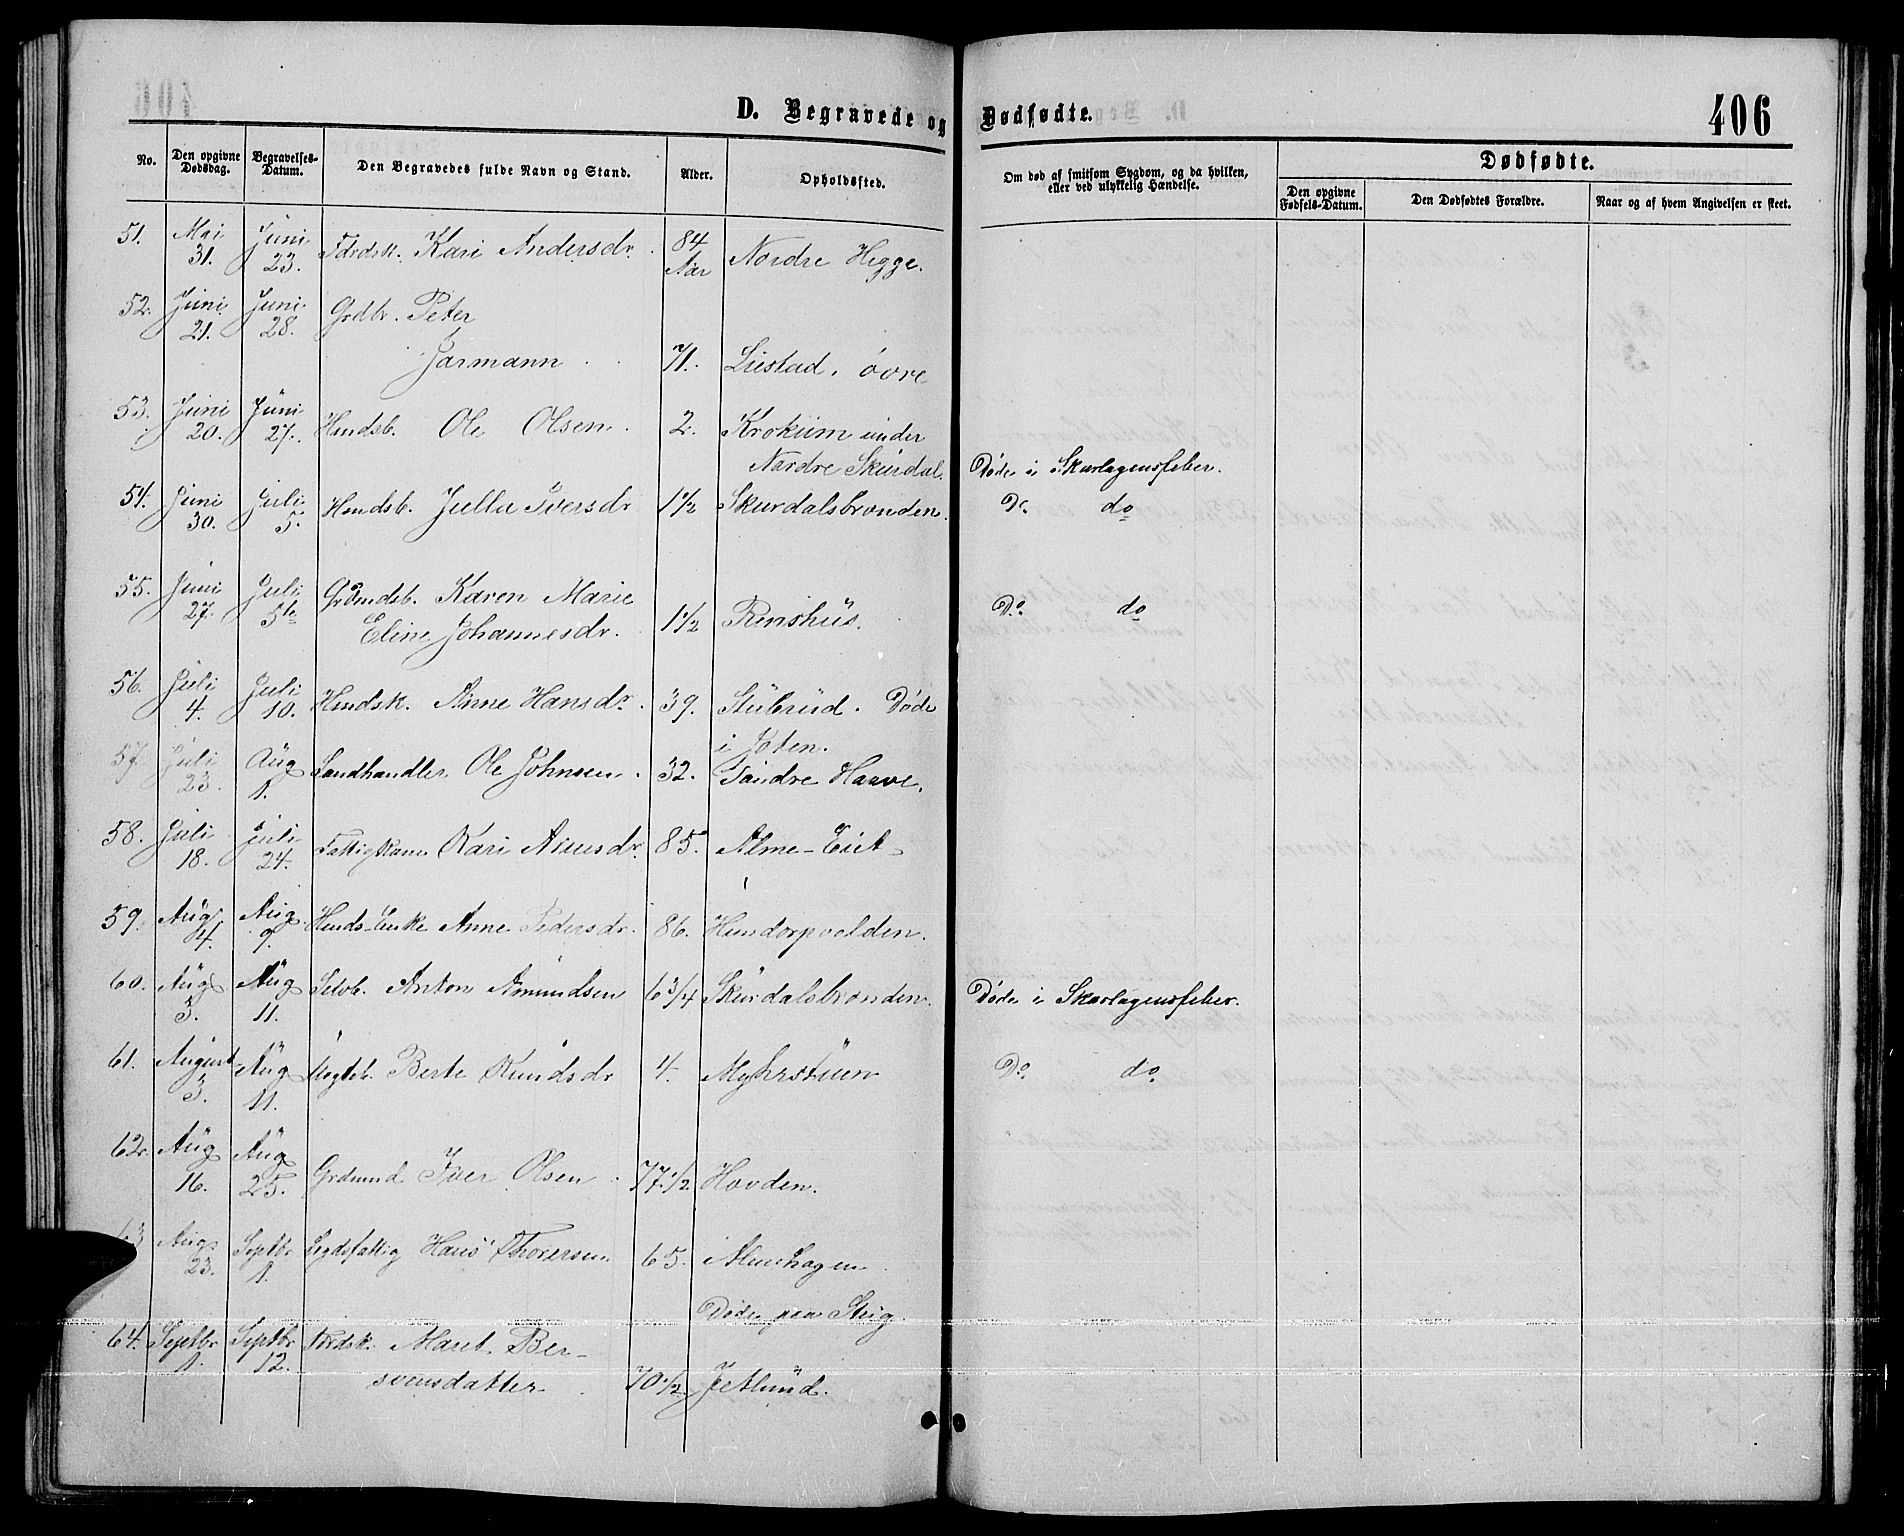 406
D. Begravede og Dødfødte.
No.
Den opgivne Dødsdag.
Begravelses-Datum.
Den Begravedes fulde Navn og Stand.
Alder.
Opholdssted.
Om død af smitsom Sygdom, og da hvilken,
eller ved ulykkelig Hændelse.
Dødfødte.
Den opgivne Fødsels-Datum.
Den Dødfødtes Forældre.
Naar og af hvem Angivelsen er skeet.
51. Mai 31. Juni 23. Fdrdsk. Kari Andersdr. 84 Aar Nordre Hegge.
52. Juni 21. Juni 28. Grdbr. Peter
Jarmann 71. Liestad, övre
53. Juni 20. Juni 27. Hmdsb. Ole Olsen. 2. Krokum under
Nordre Skurdal. Døde i Skarlagensfeber.
54. Juni 30. Juli 5. Hmdsb. Julla Iversdr 1 1/2 Skurdalsbrønden. Do. do
55. Juni 27. Juli 5te Grdmdsb. Karen Marie
Eline Johannesdr. 1 1/2 Rinshus. Do. do
56. Juli 4. Juli 10. Hmdsk. Anne Hansdr. 39. Stubrud. Døde
i Joten.
57. Juli 23. Aug 1. Landhandler Ole Johnsen. 32. Søndre Haave.
58. Juli 18. Juli 24. Fattigkone Kari 85. Alme-Eiet
59. Aug 4. Aug 9. Hmds-Enke Anne Pedersdr. 86. Hundorpvolden.
60. Aug 5. Aug 11. Selvb. Anton Amundsen 6 3/4 Skurdalsbrønden. Døde i Skarlagensfeber.
61. August 3. Aug 11. Berte Knudsdr 4. Myhrstuen Do. do.
62. Aug 16. Aug 25. Grdmnd Iver Olsen 77 1/2 Hovden.
63 Aug. 23. Septbr 1. Legdsfattig Hans Thoresen. 65. Almehagen
Døde paa Steig.
64. Septbr 1. Septbr 12. Frdsk. Marit Ber-
svensdatter 70 1/2 Jetlund.